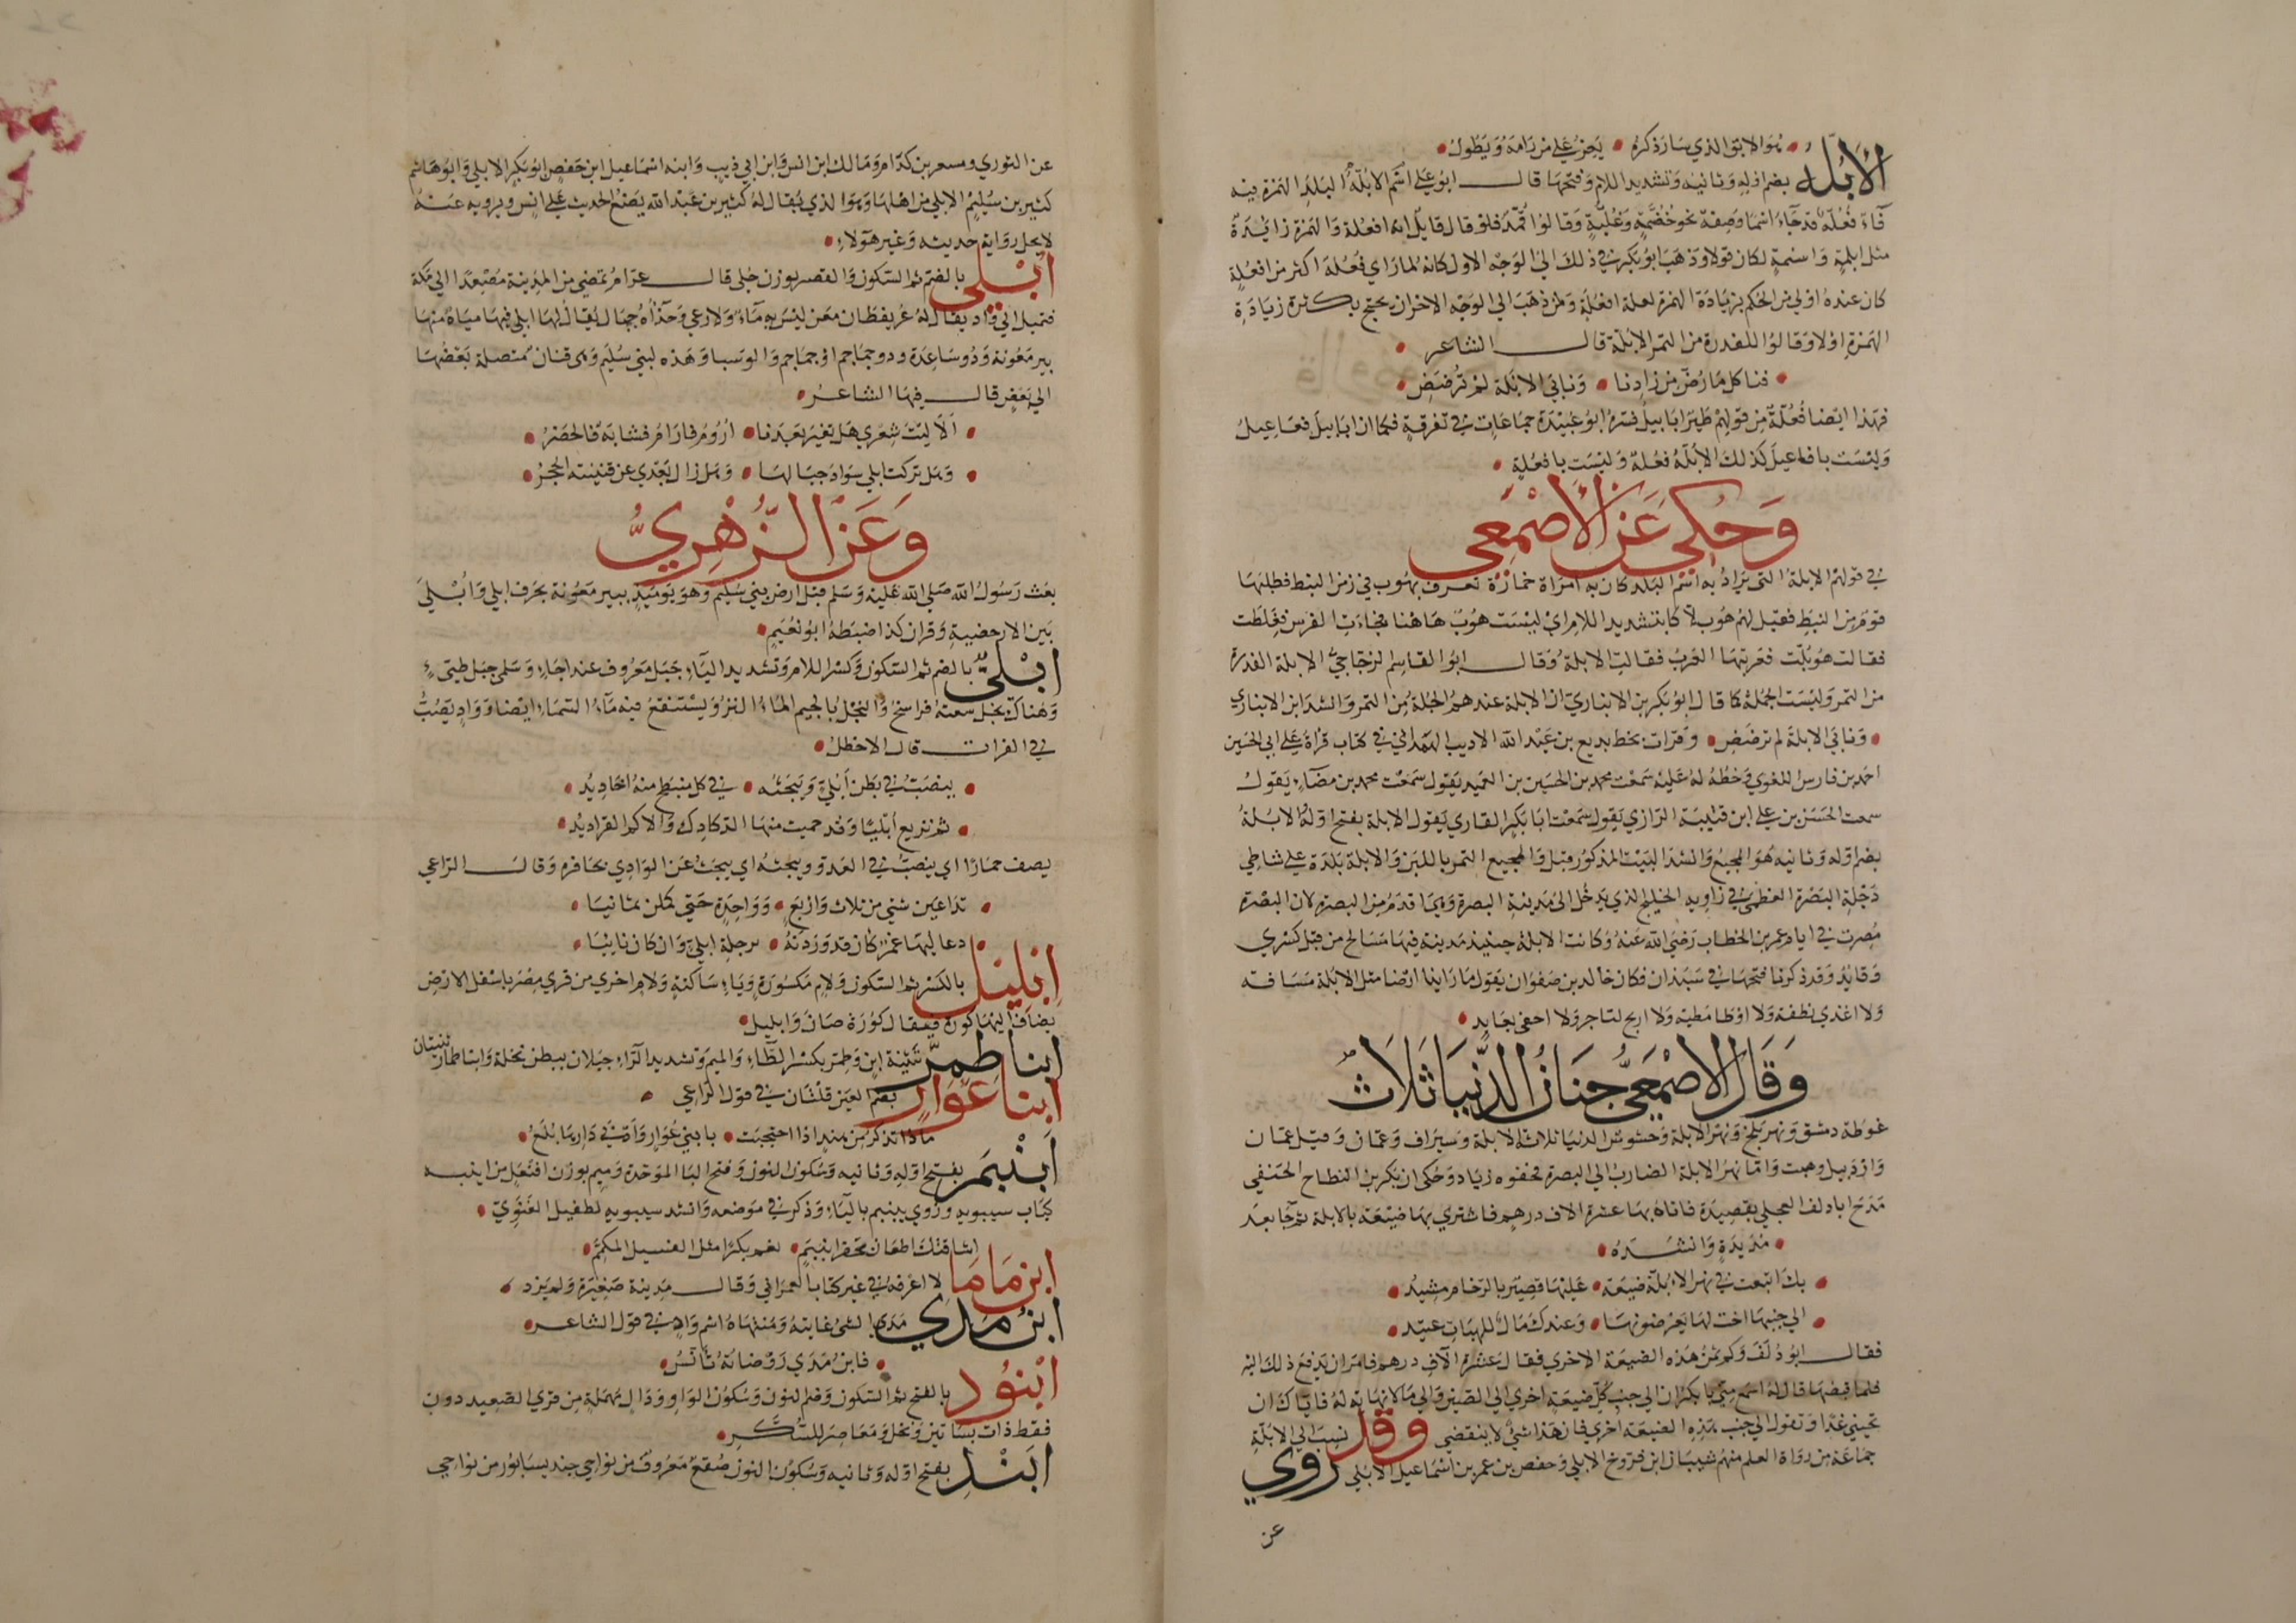 هو الابق الذي سار ذكره • يحزن على من رامه ويطول •
الأبلة بضم اوله وثانيه وتشديد اللام وفتحها قال ابو على اسم الابلة البلد الهمزة فيه
فاء فعلة قد جاء اسما وصفة نحو خضمة وغلبة وقالوا قمد فلو قال قايل انه افعلة والهمزة زايدة
مثل ابلمة واسنمة لكان قولا وذهب ابو بكر في ذلك الى الوجه الاول كانه لما راي فعلة اكثر من افعلة
كان عنده اولى من الحكم بزيادة الهمزة لعلة افعلة ومن ذهب الى الوجه الاخر ان يحتج بكثرة زيادة
الهمزة اولا وقالوا للفدرة من التمر الابلة قال الشاعر •
• فناكل ما رض من زادنا • ونابى الابلة لم ترضض •
فهذا ايضا فعلة من قولهم طير ابابيل فسره ابو عبيدة جماعات في تفرقة فكما ان ابابيل فعاعيل
وليست بافاعيل كذلك الابلة فعلة وليست بافعلة •
وحكي عن الأصمعي
في قولهم الابلة التي يراد به اسم البلد كان به امراة خمارة تعرف بهوب في زمن النبط فطلبها
قوم من النبط فقيل لهم هوب لاكا بتشديد اللام اي ليست هوب هاهنا فجاءت الفرس فغلطت
فقالت هوبلت فعربتها العرب فقالت الابلة وقال ابو القاسم الزجاجي الابلة الفدرة
من التمر وليست الجملة كما قال ابو بكر بن الانباري ان الابلة عندهم الجلة من التمر وانشد ابن الانباري
• ونابى الابلة لم ترضض • وقرات بخط بديع بن عبد الله الاديب الهمداني في كتاب قراه على ابى الحسين
احمد بن فارس اللغوي وخطه له عليه سمعت محمد بن الحسين بن العميد يقول سمعت محمد بن مضاء يقول
سمعت الحسن بن على ابن قتيبة الرازي يقول سمعت ابا بكر القاري يقول الابلة بفتح اوله الابلة
بضم اوله وثانيه هو المجيع وانشد البيت المذكور قبل والمجيع التمر باللبن والابلة بلدة على شاطي
دجلة البصرة العظمى في زاوية الخليج الذي يدخل الى مدينة البصرة وهي اقدم من البصرة لان البصرة
مصرت في ايام عمر بن الخطاب رضى الله عنه وكانت الابلة حينيذ مدينة فيها مسالح من قبل كسري
وقايد وقد ذكرنا فتحها في سبذان فكان خالد بن صفوان يقول ما راينا ارضا مثل الابلة مسافة
ولا اغذي نطفة ولا اوطا مطية ولا اربح لتاجر ولا احفى بعابد •
وقال الاصمعي جنان الدنيا ثلاث
غوطة دمشق ونهر بلخ ونهر الابلة وحشوش الدنيا ثلاثة الابلة وسيراف وعمان وقيل عمان
واردبيل وهيت واما نهر الابلة الضارب الى البصرة فحفره زياد وحكى ان بكر بن النطاح الحنفى
مدح ابا دلف العجلي بقصيدة فاثابه بها عشرة الاف درهم فاشترى بها ضيعة بالابلة ثم جا بعد
• مديدة وانشده •
• بك ابتعت في نهر الابلة ضيعة • عليها قصير بالرخام مشيد •
• الى جنبها اخت لها يعرضونها • وعندك مال للهبات عتيد •
فقال ابو دلف وكم ثمن هذه الضيعة الاخري فقال عشرة الاف درهم فامر ان يدفع ذلك اليه
فلما قبضها قال له اسمع مني يا بكر ان الى جنب كل ضيعة اخري الى الصين والى ما لا نهاية له فاياك ان
تجيني غدا وتقول الى جنب هذه الضيعة اخري فان هذا شي لا ينقضي وقد نسب الى الابلة
جماعة من رواة العلم منهم شيبان ابن فروخ الابلي وحفص بن عمر بن اسماعيل الابلي روي
عن
عن الثوري ومسعر بن كدام ومالك ابن انس وابن ابي ذيب وابنه اسماعيل ابن حفص ابو بكر الابلي وابو هاشم
كثير بن سليم الابلي من اهلها وهو الذي يقال له كثير بن عبد الله يضع الحديث على انس ويرويه عنه
لا يحل رواية حديثه وغير هولاء •
أبلى بالضم ثم السكون والقصر بوزن حبلى قال عرام تمضي من المدينة مصعدا الى مكة
فتميل الى واد يقال له عريفطان معن ليس به ماء ولا رعي وحذاه جبال يقال لها ابلى فيها مياه منها
بير معونة وذو ساعدة وذو جماجم او جماجم والوسبا وهذه لبني سليم وهى قنان متصلة بعضها
الى بعض قال فيها الشاعر •
• الا ليت شعري هل تغير بعدنا • اروم فارام فشابة فالحضر •
• وهل تركت ابلى سواد جبالها • وهل زال بعدي عن قنينته الحجر •
وعن الزهري
بعث رسول الله صلى الله عليه وسلم قبل ارض بني سليم وهو يوميذ ببير معونة بجرف ابلي وأبلى
بين الارحضية وقران كذا ضبطه ابو نعيم •
أبلي بالضم ثم السكون وكسر اللام وتشديد الياء جبل معروف عند اجاء وسلمى جبل طيء
وهناك نجل سعته فراسخ والنجل بالجيم الماء النز ويستنقع فيه ماء السماء ايضا وواد يصب
في الفرات قال الاخطل •
• ينصب في بطن أبلي ويبحثه • في كل منبطح منه اخاديد •
• ثم تربع أبليا وقد حميت منها الدكادك والاكم القراديد •
يصف حمارا اي ينصب في العدو ويبحثه اي يبحث عن الوادي بحافره وقال الراعي
• تداعين شتي من ثلاث واربع • وواحدة حتى كملن ثمانيا •
• دعا لبها عمر كان قد وردنه • برجلة ابلي وان كان نايبا •
إبليل بالكسر ثم السكون ولام مكسورة وياء ساكنة ولام اخري من قري مصر باسفل الارض
يضاف اليها كورة فيقال كورة صان وابليل •
ابنا طمر تثنية ابن وطمر بكسر الطاء والميم وتشديد الراء جبلان ببطن نخلة وابنا طمار ثنيتان
ابنا عوار بضم العين قلتان في قول الراعي •
ماذا تذكر من هند اذا احتجبت • بابني عوار وادنى دارها بلع •
أبنبم بفتح اوله وثانيه وسكون النون وفتح البا الموحدة وميم بوزن افنعل من ابنية
كتاب سيبويه وروي يبنبم بالياء وذكر في موضعه وانشد سيبويه لطفيل الغنوي •
اشاقتك اظعان بحفر ابنبم • نعم بكرا مثل الفسيل المكمم •
ابن ماما لا اعرفه في غير كتاب العمراني وقال مدينة صغيرة ولم يزد •
ابن مدى مدى الشي غايته ومنتهاه اسم واد في قول الشاعر •
• فابن مدي روضاته تانس •
ابنود بالفتح ثم السكون وضم النون وسكون الواو ودال مهملة من قري الصعيد دون
فقط ذات بساتين ونخل ومعاصر للسكر •
أبند بفتح اوله وثانيه وسكون النون صقع معروف من نواحي جنديسابور من نواحي